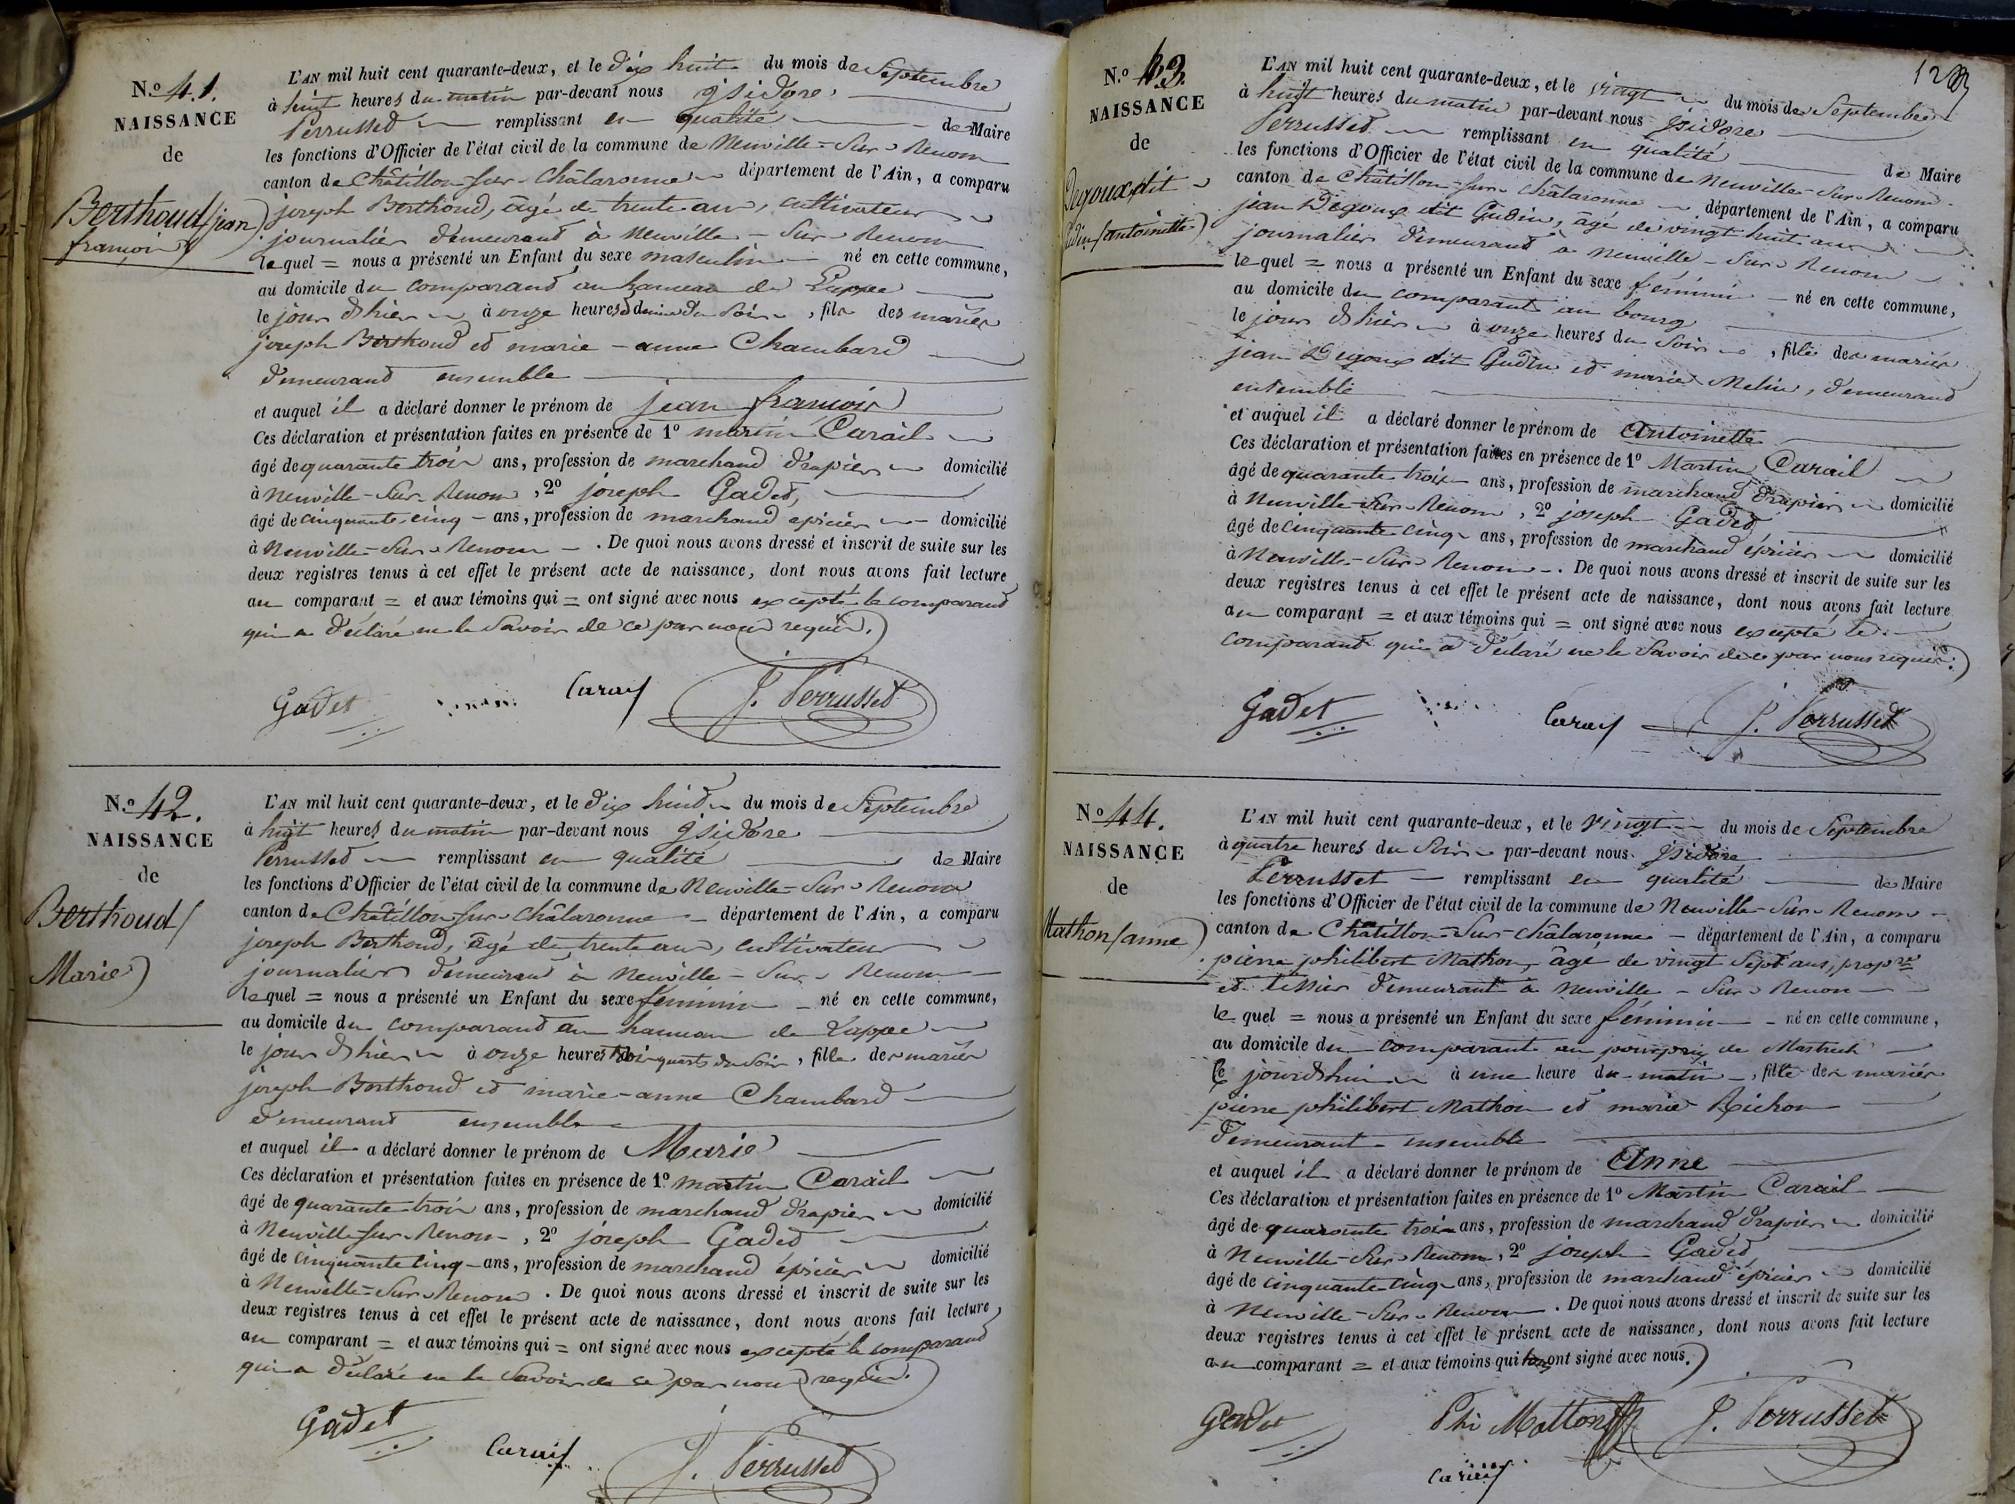 N.o 41.
NAISSANCE
de
Berthoud (jean
françois)
L'AN mil huit cent quarante-deux, et le dix huit du mois de Septembre
à huit heures du matin par-devant nous isidore
Perrusset remplissant en qualité de Maire
les fonctions d'Officier de l'état civil de la commune de Neuville-Sur-Renom
canton de Châtillon-sur-Châlaronne département de l'Ain, a comparu
joseph Berthoud, âgé de trente ans, cultivateur
journalier demeurand à Neuville-Sur-Renom
lequel = nous a présenté un Enfant du sexe masculin né en cette commune,
au domicile du comparand au hameau de Lappee
le jour d'hier à onze heures & demie du Soir, fils des mariés
joseph Berthoud et marie-anne Chambard
demeurand ensemble
et auquel il a déclaré donner le prénom de jean françois
Ces déclaration et présentation faites en présence de 1º martin Carail
âgé de quarante trois ans, profession de marchand drapier domicilié
à Neuville-Sur-Renom, 2º joseph Gaded,
âgé de cinquante cinq ans, profession de marchand épicier domicilié
à Neuville-Sur-Renom. De quoi nous avons dressé et inscrit de suite sur les
deux registres tenus à cet effet le présent acte de naissance, dont nous avons fait lecture
au comparant = et aux témoins qui = ont signé avec nous excepté le comparand
qui a déclaré ne le Savoir de ce par nous requis.
Gadet Carail J. Perrusset
N.o 42.
NAISSANCE
de
Berthoud (
Marie)
L'AN mil huit cent quarante-deux, et le dix huit du mois de Septembre
à huit heures du matin par-devant nous isidore
Perrusset remplissant en qualité de Maire
les fonctions d'Officier de l'état civil de la commune de Neuville-Sur-Renom
canton de Châtillon-sur-Châlaronne département de l'Ain, a comparu
joseph Berthoud, âgé de trente ans, cultivateur
journalier demeurand à Neuville-Sur-Renom
lequel = nous a présenté un Enfant du sexe féminin né en cette commune,
au domicile du comparand au hameau de Lappee
le jour d'hier à onze heures trois quarts du Soir, fille des mariés
joseph Berthoud et marie-anne Chambard
demeurand ensemble
et auquel il a déclaré donner le prénom de Marie
Ces déclaration et présentation faites en présence de 1º martin Carail
âgé de quarante trois ans, profession de marchand drapier domicilié
à Neuville-sur-Renom, 2º joseph Gaded
âgé de cinquante cinq ans, profession de marchand épicier domicilié
à Neuville-Sur-Renom. De quoi nous avons dressé et inscrit de suite sur les
deux registres tenus à cet effet le présent acte de naissance, dont nous avons fait lecture
au comparant = et aux témoins qui = ont signé avec nous excepté le comparand
qui a déclaré ne le Savoir de ce par nous requis.
Gadet Carail J. Perrusset
12
N.o 43.
NAISSANCE
de
Degoux dit
Gudin (antoinette)
L'AN mil huit cent quarante-deux, et le vingt du mois de Septembre
à huit heures du matin par-devant nous isidore
Perrusset remplissant en qualité de Maire
les fonctions d'Officier de l'état civil de la commune de Neuville-Sur-Renom
canton de Châtillon-sur-Châlaronne département de l'Ain, a comparu
jean Degoux dit Gudin, âgé de vingt huit ans
journalier demeurand à Neuville-Sur-Renom
lequel = nous a présenté un Enfant du sexe féminin né en cette commune,
au domicile du comparant au bourg
le jour d'hier à onze heures du Soir, fille des mariés
jean Degoux dit Gudin et marie Melin, demeurand
ensemble
et auquel il a déclaré donner le prénom de Antoinette
Ces déclaration et présentation faites en présence de 1º Martin Carail
âgé de quarante trois ans, profession de marchand drapier domicilié
à Neuville-Sur-Renom, 2º joseph Gaded
âgé de cinquante cinq ans, profession de marchand épicier domicilié
à Neuville-Sur-Renom. De quoi nous avons dressé et inscrit de suite sur les
deux registres tenus à cet effet le présent acte de naissance, dont nous avons fait lecture
au comparant = et aux témoins qui = ont signé avec nous excepté le
comparand qui a déclaré ne le Savoir de ce par nous requis.
Gadet Carail J. Perrusset
N.o 44.
NAISSANCE
de
Mathon (anne)
L'AN mil huit cent quarante-deux, et le vingt du mois de Septembre
à quatre heures du Soir par-devant nous isidore
Perrusset remplissant en qualité de Maire
les fonctions d'Officier de l'état civil de la commune de Neuville-Sur-Renom
canton de Châtillon-Sur-Châlaronne département de l'Ain, a comparu
pierre philibert Mathon, âgé de vingt Sept ans, propre
et tissier demeurant à Neuville-Sur-Renom
lequel = nous a présenté un Enfant du sexe féminin né en cette commune,
au domicile du comparant au de
ce jourd'hui à une heure du matin, fille des mariés
pierre philibert Mathon et marie Richon
demeurant ensemble
et auquel il a déclaré donner le prénom de Anne
Ces déclaration et présentation faites en présence de 1º Martin Carail
âgé de quarante trois ans, profession de marchand drapier domicilié
à Neuville-Sur-Renom, 2º joseph Gaded
âgé de cinquante cinq ans, profession de marchand épicier domicilié
à Neuville-Sur-Renom. De quoi nous avons dressé et inscrit de suite sur les
deux registres tenus à cet effet le présent acte de naissance, dont nous avons fait lecture
au comparant = et aux témoins qui ont signé avec nous.
Gadet Phi Matton J. Perrusset
Carail